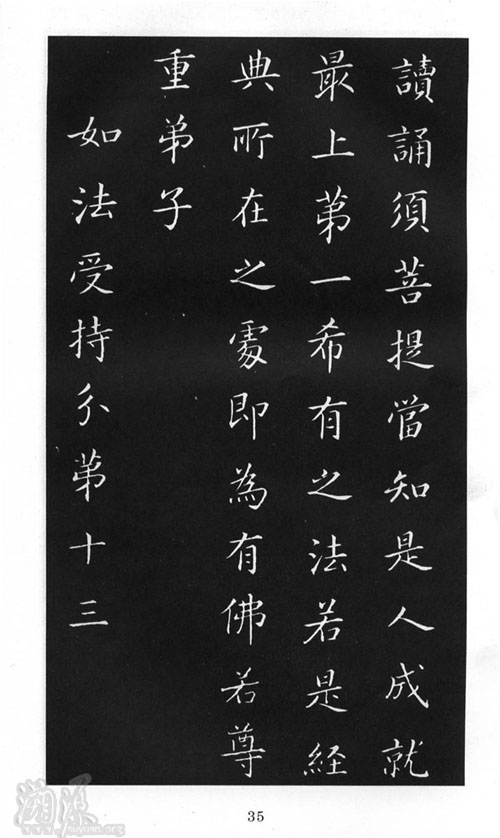 讀誦須菩提當知是人成就
最上第一希有之法若是経
典所在之處即為有佛若尊
重弟子
如法受持分第十三
35
suyuan.org